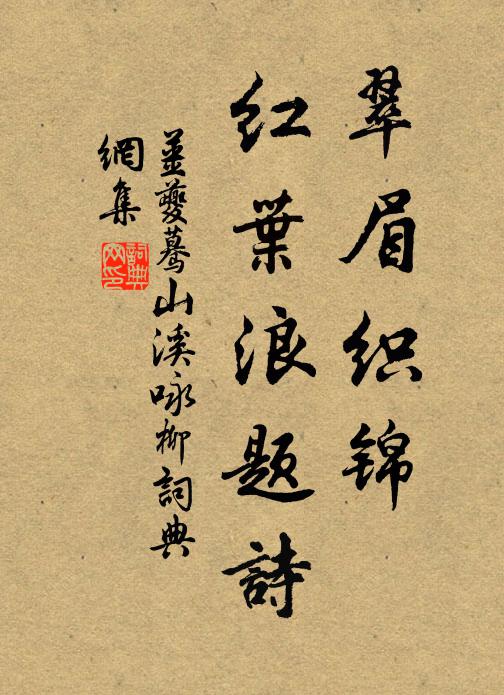 翠眉织锦
红葉浪题詩
薑夔驀山溪咏柳詞典
網集
詞典
网印